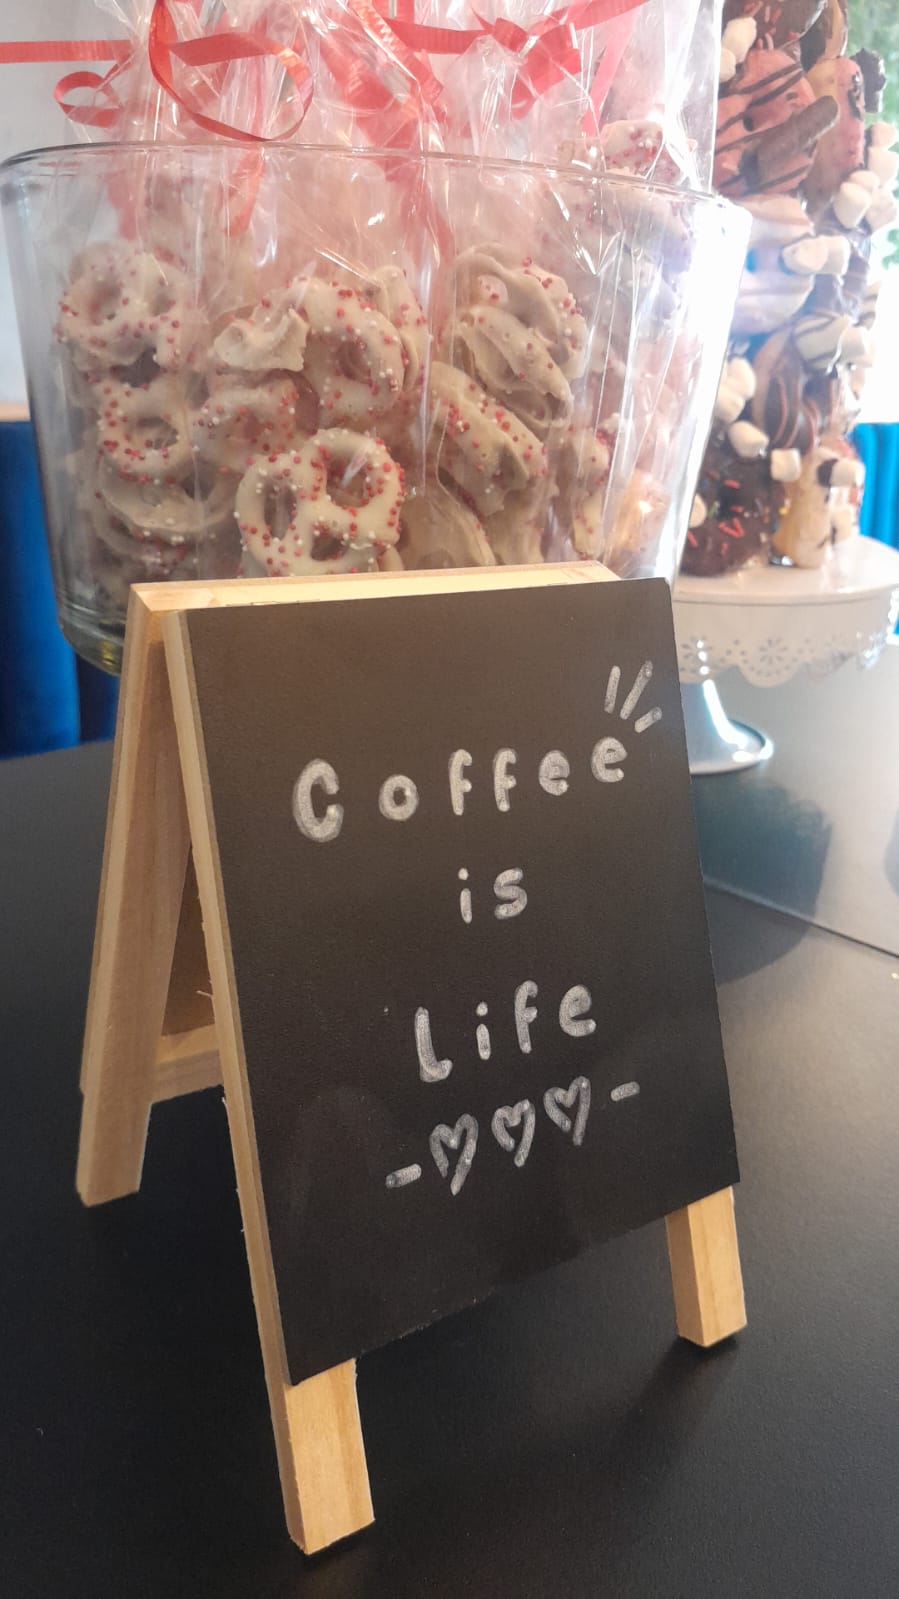 Coffee
is
Life
-♡♡♡-